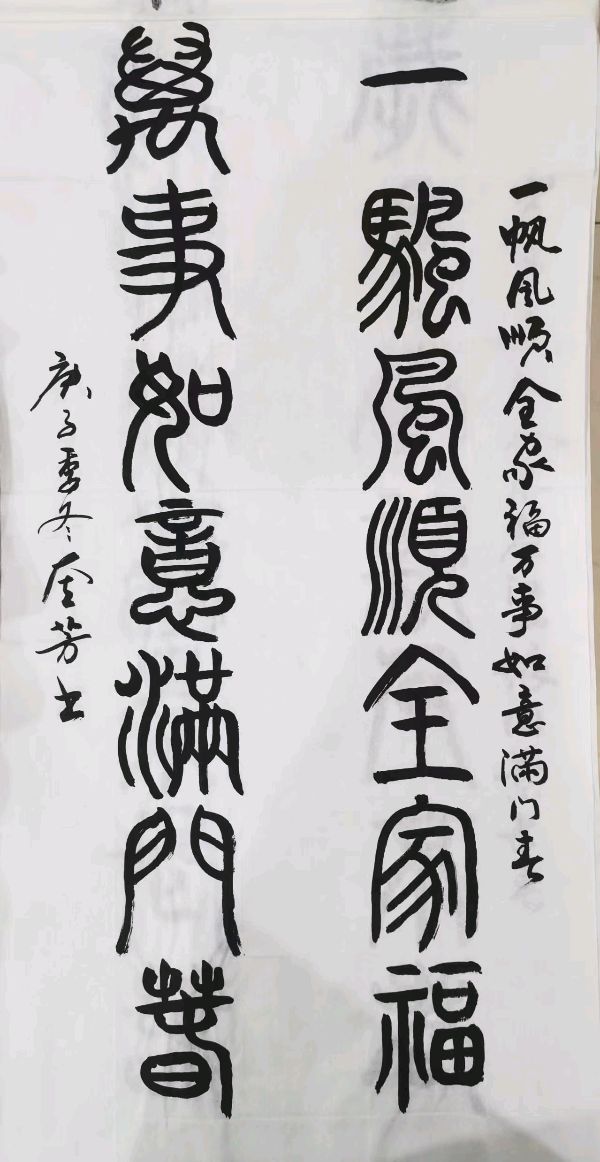 一帆风顺全家福万事如意满门春
一颿風順全家福
萬事如意滿門春
庚子季冬芳书